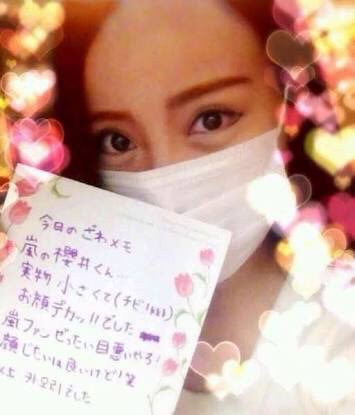 今日のざわメモ
嵐の櫻井くん
実物小さくて(チビ!
お顔デカッ!!でした
嵐ファンぜったい目悪いやろ!
顔じたいは良いけど!笑
以上 カオリでした